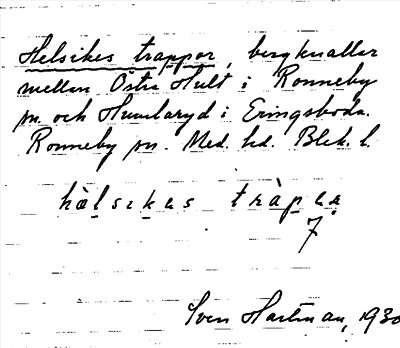 Helsikes trappor, bergknallar
mellan Östra Hult i Ronneby
sn. och Humlaryd i Eringsboda.
Ronneby sn. Med. hd. Blek. l.
hälsikas tràpạr
7
Sven Hartman, 1930